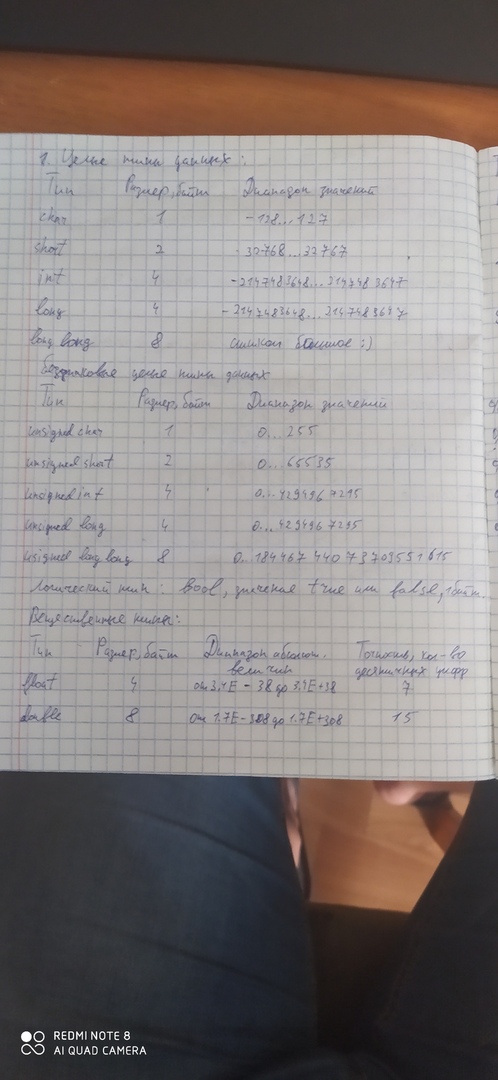 1. Целые типы данных:
Тип Размер, байт Диапазон значений
char 1 -128...127
short 2 -32768...32767
int 4 -2147483648...2147483647
long 4 -2147483648...2147483647
long long 8 слишком большое :)
беззнаковые целые типы данных
Тип Размер, байт Диапазон значений
unsigned char 1 0...255
unsigned short 2 0...65535
unsigned int 4 0...4294967295
unsigned long 4 0...4294967295
unsigned long long 8 0..18446744073709551615
Логический тип: bool, значения true или false, 1 байт.
Вещественные типы:
Тип Размер, байт Диапазон абсолют. величин Точность, кол-во десятичных цифр
float 4 от 3.4E-38 до 3.4E+38 7
double 8 от 1.7E-308 до 1.7E+308 15
REDMI NOTE 8
AI QUAD CAMERA